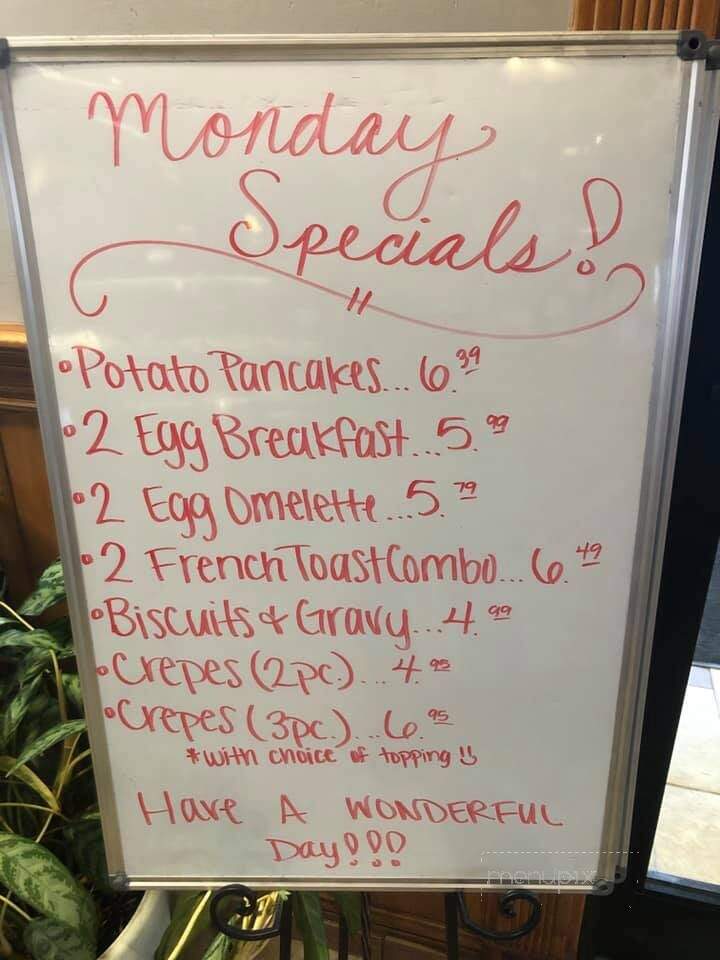 Monday
Specials!
•Potato Pancakes... 6.39
•2 Egg Breakfast...5.99
•2 Egg Omelette...5.79
•2 French Toast Combo... 6.49
•Biscuits & Gravy...4.99
•Crepes (2pc.)...4.95
•Crepes (3pc.)...6.95
*with choice of topping
Have A WONDERFUL
Day!!!
menupix